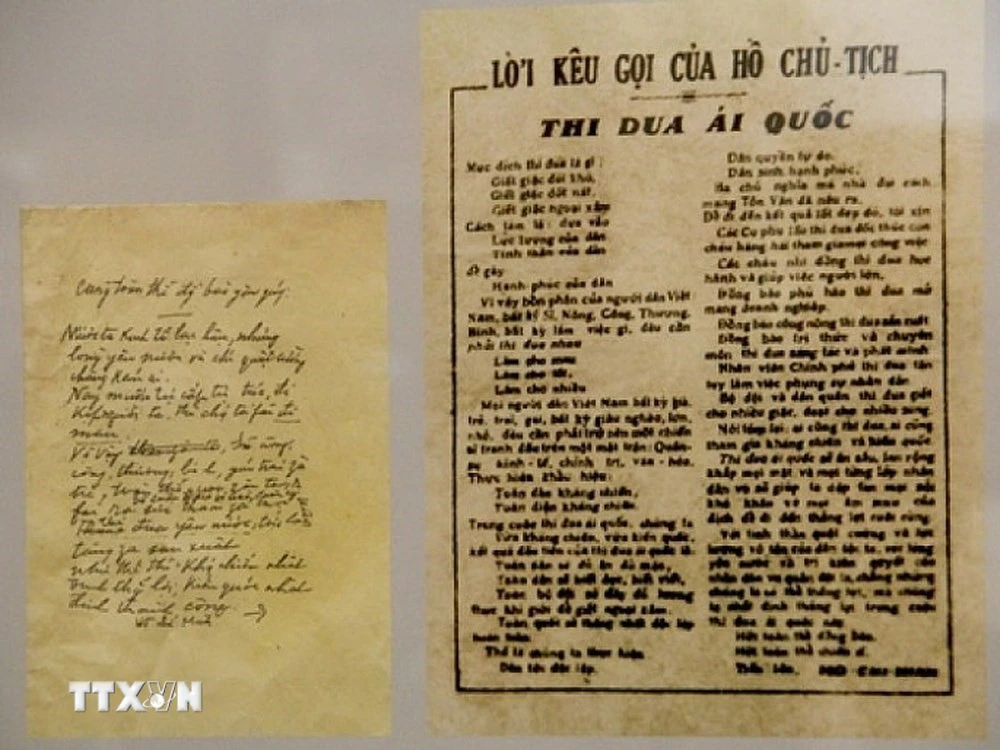 Cùng toàn thể đồng bào yêu quý
Nước ta kinh tế lạc hậu, nhưng
lòng yêu nước và chí quật cường
chẳng kém ai.
Nay muốn
người ta, thì
Vì vậy sĩ, nông,
công, thương, binh, gái trai già
trẻ,
ra sức tham gia
đua yêu nước,
tăng gia sản xuất
Kháng chiến nhất
định thắng lợi, Kiến quốc nhất
định thành công.
Hồ Chí Minh
TTXVN
LỜI KÊU GỌI CỦA HỒ CHỦ-TỊCH
THI DUA ÁI QUỐC
Mục đích thi đua là gì :
Giết giặc đói khổ,
Giết giặc dốt nát,
Giết giặc ngoại xâm
Cách làm là : dựa vào
Lực lượng của dân
Tinh thần của dân
để gây
Hạnh phúc của dân
Vì vậy bổn phận của người dân Việt
Nam, bất kỳ Sĩ, Nông, Công, Thương,
Binh, bất kỳ làm việc gì, đều cần
phải thi đua nhau
Làm cho mau
Làm cho tốt,
Làm cho nhiều
Mọi người dân Việt Nam bất kỳ già,
trẻ, trai, gái, bất kỳ giàu nghèo, lớn,
nhỏ, đều cần phải trở nên một chiến
sĩ tranh đấu trên một mặt trận : Quân-
sự kinh-tế, chính trị, văn-hóa.
Thực hiện khẩu hiệu :
Toàn dân kháng chiến,
Toàn diện kháng chiến.
Trong cuộc thi đua ái quốc, chúng ta
Vừa kháng chiến, vừa kiến quốc,
kết quả đầu tiên của thi đua ái quốc là
Toàn dân sẽ đủ ăn đủ mặc,
Toàn dân sẽ biết đọc, biết viết,
Toàn bộ đội sẽ đầy đủ lương
thực khí giới để giết ngoại xâm.
Toàn quốc sẽ thống nhất độc lập
hoàn toàn.
Thế là chúng ta thực hiện
Dân tộc độc lập.
Dân quyền tự do.
Dân sinh hạnh phúc,
Ba chủ nghĩa mà nhà đại cách
mạng Tôn Văn đã nêu ra.
Để đi đến kết quả tốt đẹp đó, tôi xin
Các Cụ phụ lão thi đua đốc thúc con
cháu hăng hái tham gia mọi công việc
Các cháu nhi đồng thi đua học
hành và giúp việc người lớn,
Đồng bào phú hào thi đua mở
mang doanh nghiệp.
Đồng bào công nông thi đua sản xuất
Đồng bào trí thức và chuyên
môn thi đua sáng tác và phát minh
Nhân viên Chính phủ thi đua tận
tụy làm việc phụng sự nhân dân
Bộ đội và dân quân thi đua giết
cho nhiều giặc, đoạt cho nhiều súng.
Nói tóm lại : ai cũng thi đua, ai cũng
tham gia kháng chiến và kiến quốc.
Thi đua ái quốc sẽ ăn sâu, lan rộng
khắp mọi mặt và mọi từng lớp nhân
dân và sẽ giúp ta dập tan mọi nỗi
khó khăn và mọi âm mưu của
địch để đi đến thắng lợi cuối cùng.
Với tinh thần quật cường và lực
lượng vô tận của dân tộc ta, với lòng
yêu nước và trí kiên quyết của
nhân dân và quân đội ta, chẳng những
chúng ta có thể thắng lợi, mà chúng
ta nhất định thắng lợi trong cuộc
thi đua ái quốc này
Hỡi toàn thể đồng bào.
Hỡi toàn thể chiến sĩ.
Tiến lên.